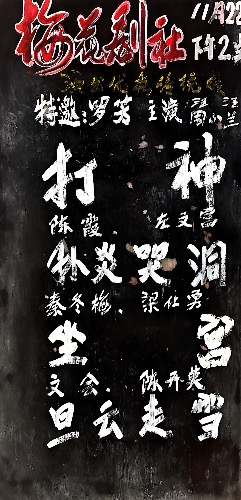 梅花剧社 11月22
下午2点
特邀:罗芳 主演
打神
陈霞、左文富
哭洞
秦冬梅、梁仕勇
坐宫
文会、陈开英
旦云走雪